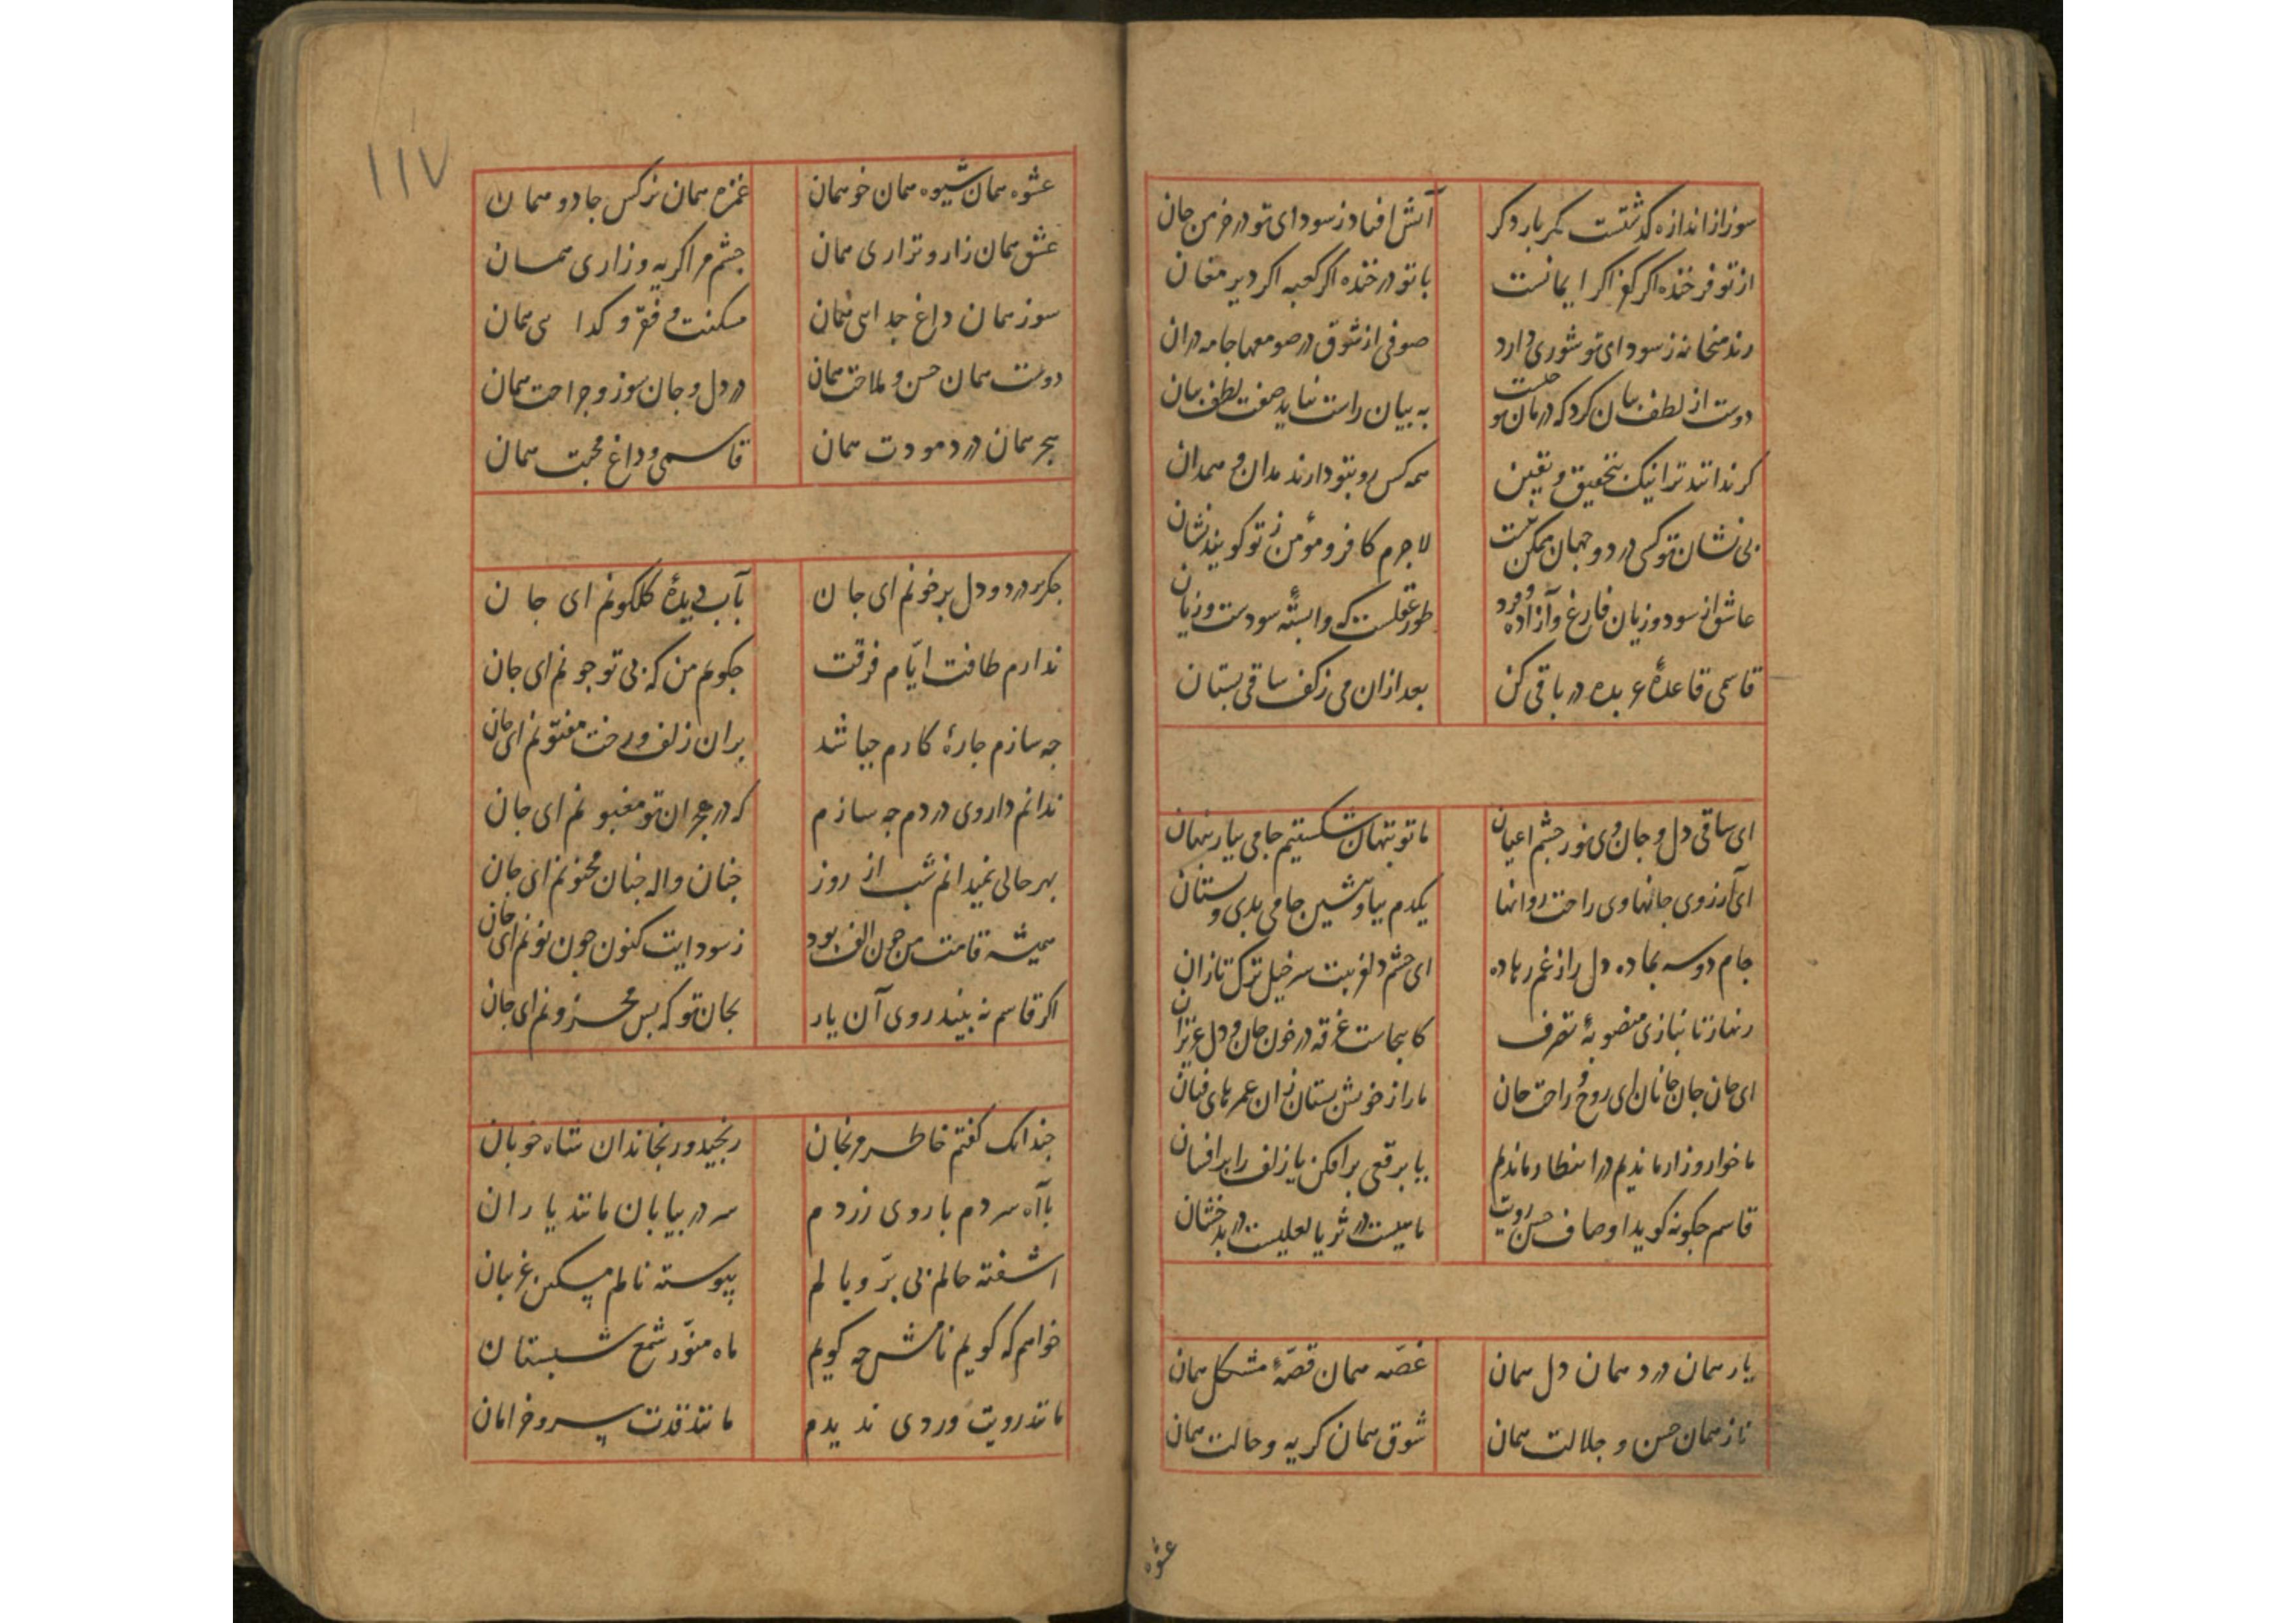 سوز از اندازه کذشتست مکر بار دکر
آتش افتاد ز سودای تو در خرمن جان
از تو فرخنده اکر کفر اکر ایمانست
با تو در خنده اکر کعبه اکر دیر مغان
رند میخانه ز سودای تو شوری دارد
صوفی از شوق در صومعها جامه دران
دوست از لطف بیان کرد که درمان تو چیست
به بیان راست نیاید صفت لطف بیان
کر ندانند ترا نیک بتحقیق و یقین
همه کس رو بتو دارند مدان و همدان
بی نشان تو کسی در دو جهان ممکن نیست
لاجرم کافر و مؤمن ز تو کویند نشان
عاشق از سود و زیان فارغ و آزاده و فرد
طور عقلست که وابستهٔ سودست و زیان
قاسمی قاعدهٔ عربده در باقی کن
بعد ازان می ز کف ساقی بستان
ای ساقی دل و جان وی نور چشم اعیان
ما توبتهان شکستیم جامی بیار پنهان
ای آرزوی جانها وی راحت روانها
یکدم بیا و بنشین جامی بده و بستان
جام دوسه بما ده دل را ز غم رها ده
ای چشم دلفریبت سرخیل ترک تازان
زنهار تا نبازی منصوبهٔ تصرف
کاینجاست غرقه در خون جان و دل عزیزان
ای جان جان جانان ای روح و راحت جان
ما را ز خویش بستان زان عمرهای فتان
ما خوار و زار ماندیم در انتظار ماندیم
یا برقعی برافکن یا زلف را برافشان
قاسم جکونه کوید اوصاف حسن رویت
ماهیست در ثریا لعلیست در بدخشان
یار همان درد همان دل همان
غصه همان قصهٔ مشکل همان
ناز همان حسن و جلالت همان
شوق همان کریه و حالت همان
عشوه
۱۱۷
عشوه همان شیوه همان خو همان
غمزه همان نرکس جادو همان
عشق همان زار و نزاری همان
چشم مرا کریه و زاری همان
سوز همان داغ جدایی همان
مسکنت و فقر و کدایی همان
دوست همان حسن و ملاحت همان
در دل و جان سوز و جراحت همان
هجر همان درد مودت همان
قاسمی و داغ محبت همان
جکر پر درد و دل پر خونم ای جان
بآب دیدهٔ کلکونم ای جان
ندارم طاقت ایّام فرقت
جکویم من که بی تو جونم ای جان
جه سازم جارهٔ کارم جباشد
بران زلف و رخت مفتونم ای جان
ندانم داروی دردم جه سازم
که در هجران تو مغبونم ای جان
بهر حالی نمیدانم شب از روز
جنان واله جنان مجنونم ای جان
همیشه قامت من جون الف بود
ز سودایت کنون جون نونم ای جان
اکر قاسم نه بیند روی آن یار
بجان تو که بس محزونم ای جان
جندانک کفتم خاطر مرنجان
رنجید و رنجاند آن شاه خوبان
با آه سردم با روی زردم
سر در بیابان مانند یاران
اشفته حالم بی پرّ و بالم
پیوسته نالم مسکین غریبان
خواهم که کویم نامش جه کویم
ماه منوّر شمع شبستان
مانند رویت وردی ندیدم
مانند قدت سرو خرامان